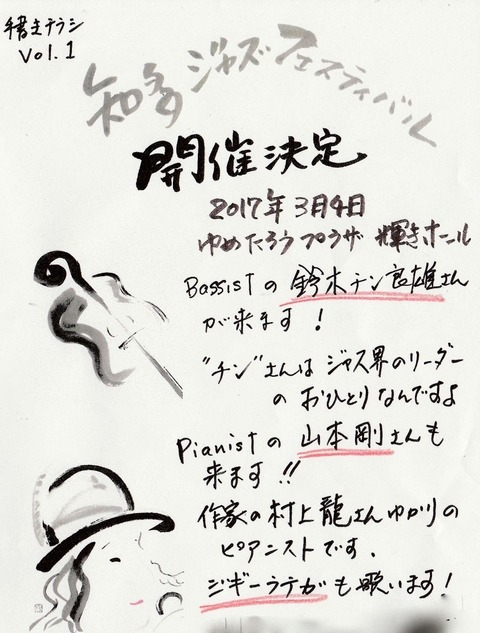 手書きチラシ
Vol.1
知多ジャズフェスティバル
開催決定
2017年3月4日
ゆめたろうプラザ 輝きホール
Bassistの 鈴木チン良雄さん
が来ます!
"チン"さんは ジャズ界のリーダー
の おひとりなんですよ
Pianistの 山本剛さんも
来ます!!
作家の村上龍さんゆかりの
ピアニストです.
ジギーラテガも歌います!